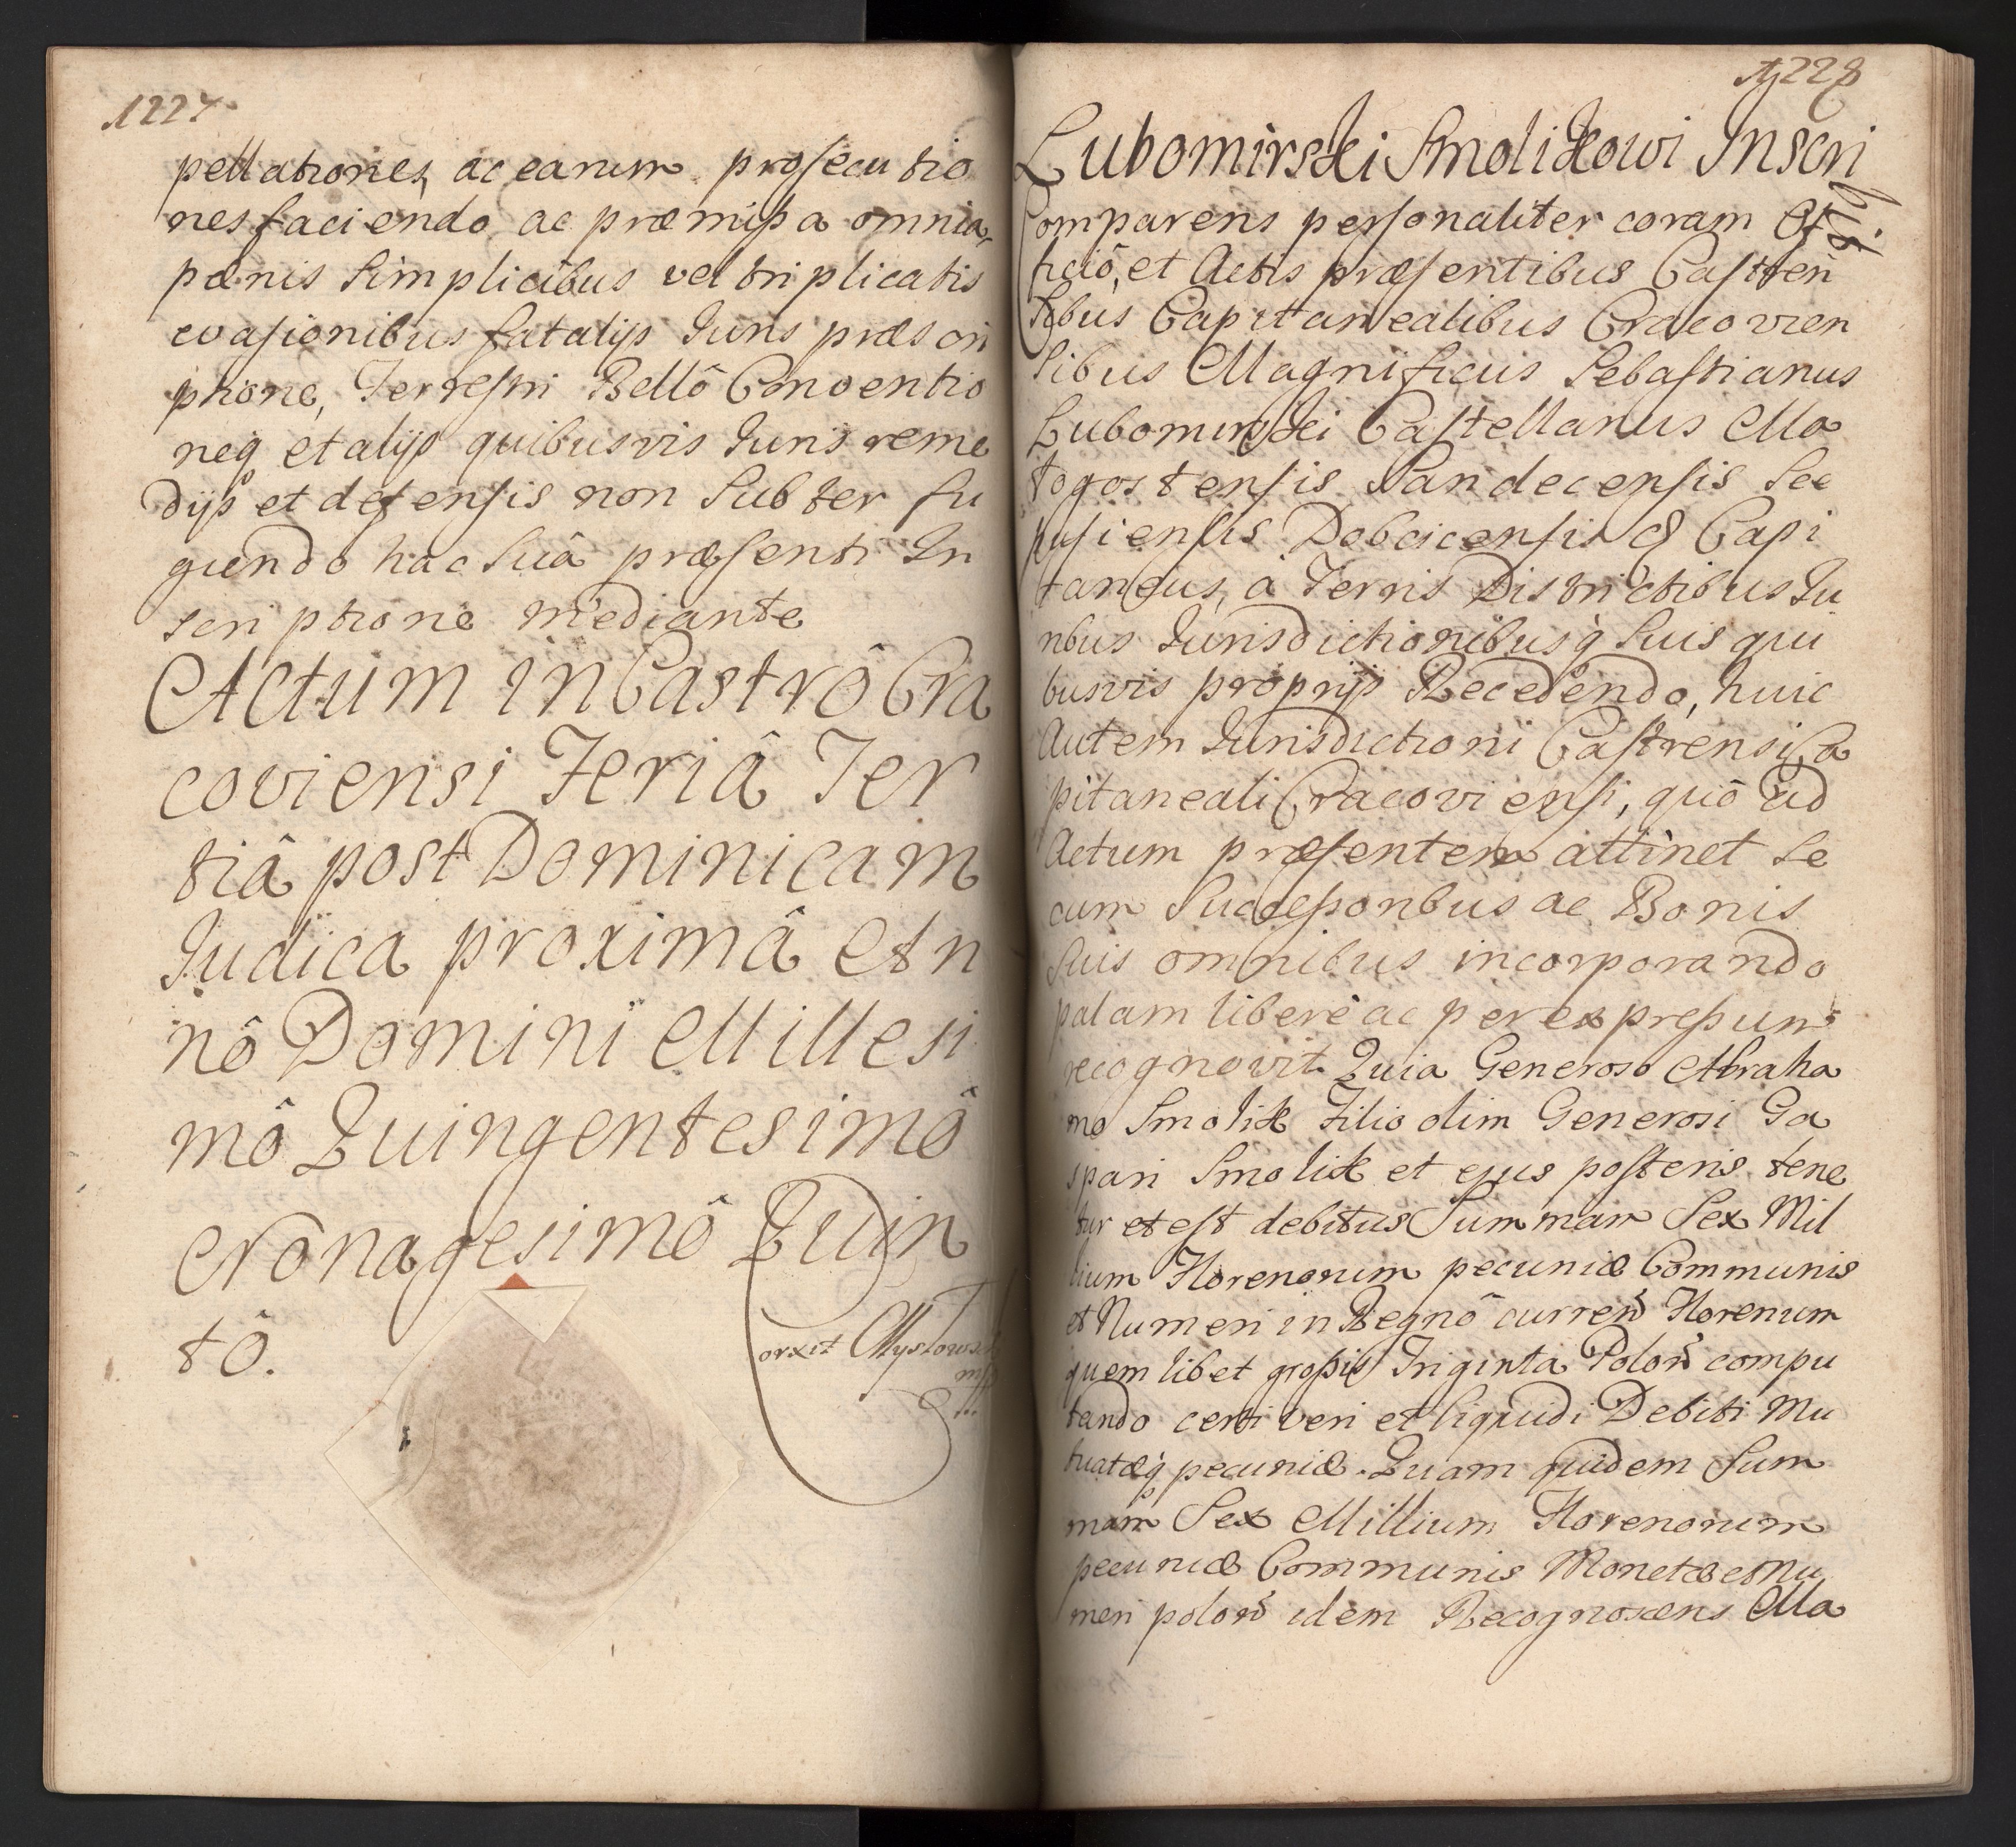 1227
pellationes, ac earum prosecutio
nes faciendo, ac præmissa omnia
pœnis Simplicibus vel triplicatis
evasionibus fatalijs Juris præscri
ptione, Terrestri Bellô Conventio
neq; et alijs quibusvis Juris reme
dijs et defensis non Subter fu
giendo hac Suâ præsenti In
scriptione mediante
Actum in Castrô Cra
coviensi Feriâ Ter
tiâ post Dominicam
Judica proximâ An
nô Domini Millesi
mô Quingentesimô
Nonagesimô Quin
tô.
orxit Mysłowski
mp
1228
Lubomirski Smolikowi Inscri
bitt.
Comparens personaliter coram Of
ficiô, et Actis præsentibus Castren
sibus Capitanealibus Cracovien
sibus Magnificus Sebastianus
Lubomirski Castellanus Ma
togostensis Sandecensis Sce
pusiensis Dobcicensis & Capi
taneus, à Terris Districtibus Ju
ribus Jurisdictionibusq; Suis qui
busvis proprijs Recedendo, huic
Autem Jurisdictioni Castrensi Ca
pitaneali Cracoviensi, quô ad
Actum præsentem attinet Se
cum Successoribus ac Bonis
Suis omnibus incorporando
palam liberè ac per expressum
recognovit. Quia Generoso Abraha
mo Smolik Filio olim Generosi Ga
spari Smolik et ejus posteris tene
tur et est debitus Summam Sex Mil
lium Florenorum pecuniæ Communis
et Numeri in Regnô curren Florenum
quem libet grossis Triginta Polon compu
tando certi veri et liquidi Debiti Mu
tuatæq; pecuniæ. Quam quidem Sum
mam Sex Millium Florenorum
pecuniæ Communis Monetæ et Nu
meri polon idem Recognoscens Ma